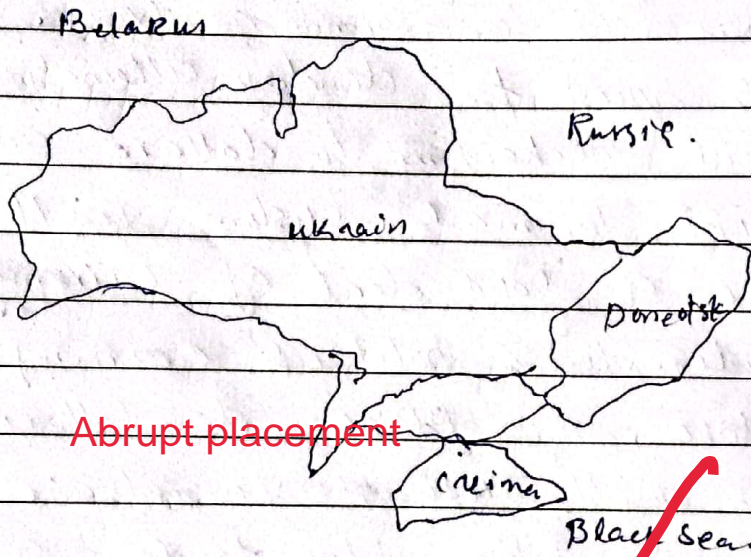 Belarus
Russia.
Ukrain
Doneotsk
Abrupt placement
Creimea
Black Sea